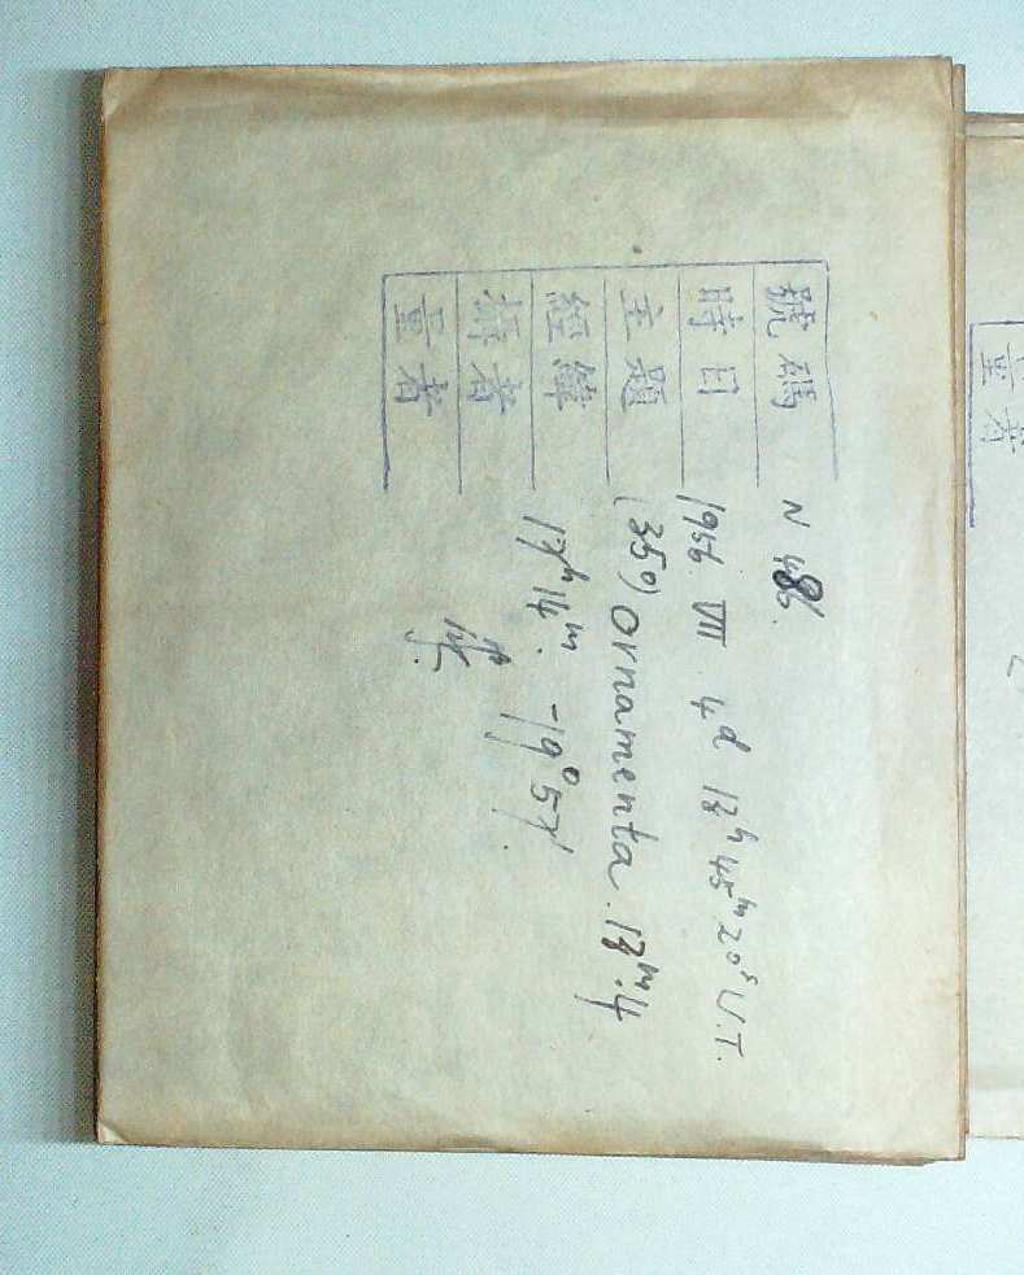 號碼 N 486.
時日 1956 VII 4d 13h 45m 20s U.T.
主題 (350) ornamenta. 13m.4
經緯 17h 14m. -19° 57'.
攝者
量者
量者